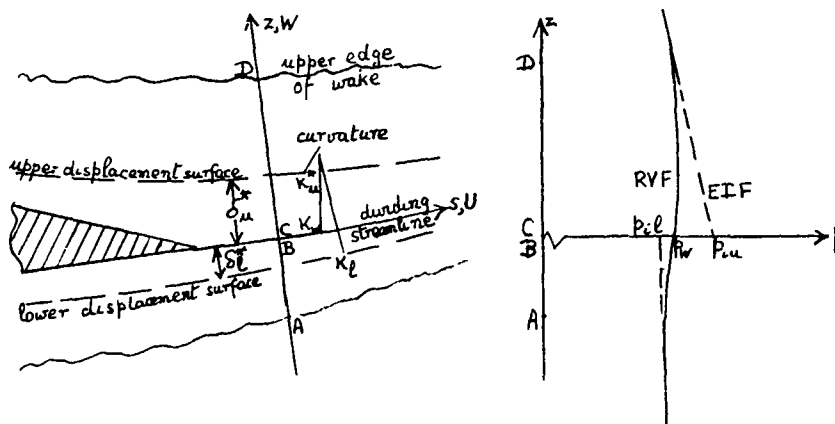 z,W
D
upper edge
of wake
curvature
upper displacement surface
κ*u
δ*u
κu
C
B
dividing
streamline
s,U
δ*l
κl
lower displacement surface
A
z
D
RVF
EIF
C
B
pil
pw
piu
A